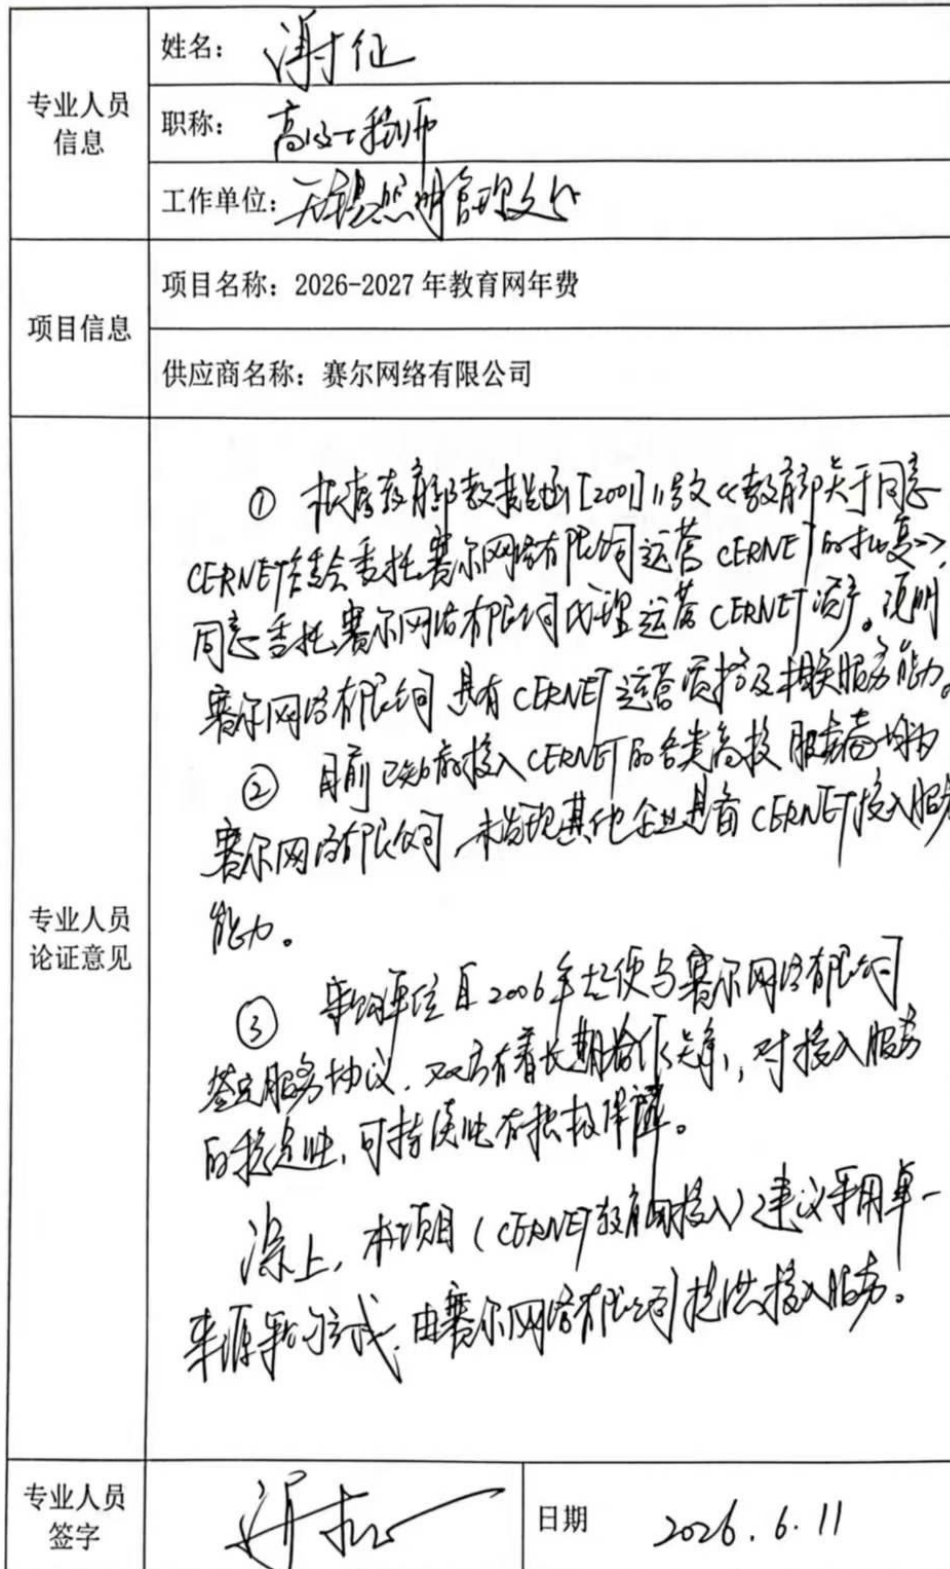 专业人员
信息
姓名：谢征
职称：高级工程师
工作单位：无锡照明管理处
项目信息
项目名称：2026-2027 年教育网年费
供应商名称：赛尔网络有限公司
专业人员
论证意见
① 根据教育部教技发函[2001]11号文《教育部关于同意
CERNET管委会委托赛尔网络有限公司运营CERNET的批复》,
同意委托赛尔网络有限公司代理运营CERNET资产。说明
赛尔网络有限公司具有CERNET运营资格及相关服务能力。
② 目前已知的接入CERNET的各类高校服务商均为
赛尔网络有限公司,未发现其他企业具备CERNET接入服务
能力。
③ 采购单位自2006年起便与赛尔网络有限公司
签定服务协议,双方有着长期合作关系,对接入服务
的稳定性、可持续性有积极保障。
综上,本项目(CERNET教育网接入)建议采用单一
来源采购方式,由赛尔网络有限公司提供接入服务。
专业人员
签字
日期 2026.6.11